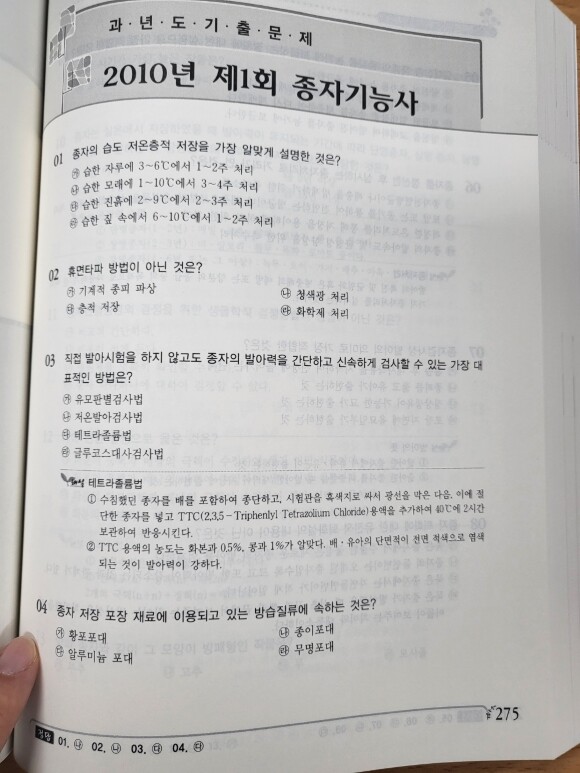 과·년·도·기·출·문·제
2010년 제1회 종자기능사
01 종자의 습도 저온층적 저장을 가장 알맞게 설명한 것은?
㉮ 습한 자루에 3~6℃에서 1~2주 처리
㉯ 습한 모래에 1~10℃에서 3~4주 처리
㉰ 습한 진흙에 2~9℃에서 2~3주 처리
㉱ 습한 짚 속에서 6~10℃에서 1~2주 처리
02 휴면타파 방법이 아닌 것은?
㉮ 기계적 종피 파상 ㉯ 청색광 처리
㉰ 층적 저장 ㉱ 화학제 처리
03 직접 발아시험을 하지 않고도 종자의 발아력을 간단하고 신속하게 검사할 수 있는 가장 대
표적인 방법은?
㉮ 유모판별검사법
㉯ 저온발아검사법
㉰ 테트라졸륨법
㉱ 글루코스대사검사법
해설 테트라졸륨법
① 수침했던 종자를 배를 포함하여 종단하고, 시험관을 흑색지로 싸서 광선을 막은 다음, 이에 절
단한 종자를 넣고 TTC(2,3,5-Triphenlyl Tetrazolium Chloride)용액을 추가하여 40℃에 2시간
보관하여 반응시킨다.
② TTC 용액의 농도는 화본과 0.5%, 콩과 1%가 알맞다. 배·유아의 단면적이 전면 적색으로 염색
되는 것이 발아력이 강하다.
04 종자 저장 포장 재료에 이용되고 있는 방습질류에 속하는 것은?
㉮ 황포포대 ㉯ 종이포대
㉰ 알루미늄 포대 ㉱ 무명포대
정답 01. ㉯ 02. ㉯ 03. ㉰ 04. ㉰
275